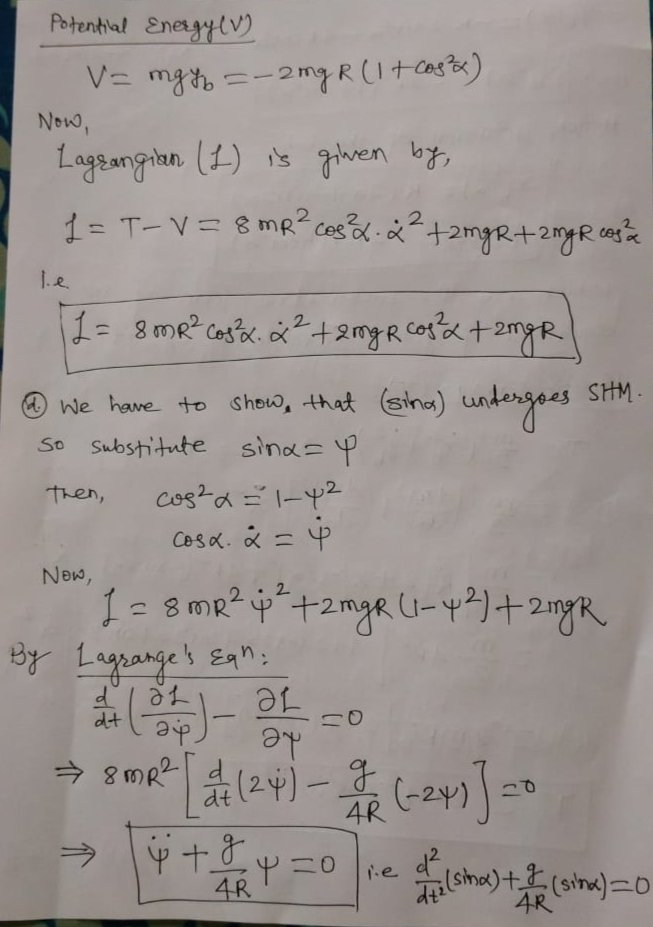 Potential Energy(V)
V = mgy_b = -2mgR(1+cos²α)
Now,
Lagrangian (L) is given by,
L = T-V = 8mR²cos²α.α̇² + 2mgR + 2mgR cos²α
I.e
L = 8mR²cos²α.α̇² + 2mgR cos²α + 2mgR
(d.) We have to show, that (sinα) undergoes SHM.
So substitute sinα = ψ
Then, cos²α = 1-ψ²
cosα.α̇ = ψ̇
Now,
L = 8mR²ψ̇² + 2mgR(1-ψ²) + 2mgR
By Lagrange's Eqn:
d/dt(∂L/∂ψ̇) - ∂L/∂ψ = 0
⇒ 8mR²[d/dt(2ψ̇) - g/4R(-2ψ)] = 0
⇒ ψ̈ + g/4R ψ = 0 i.e d²/dt²(sinα) + g/4R(sinα) = 0